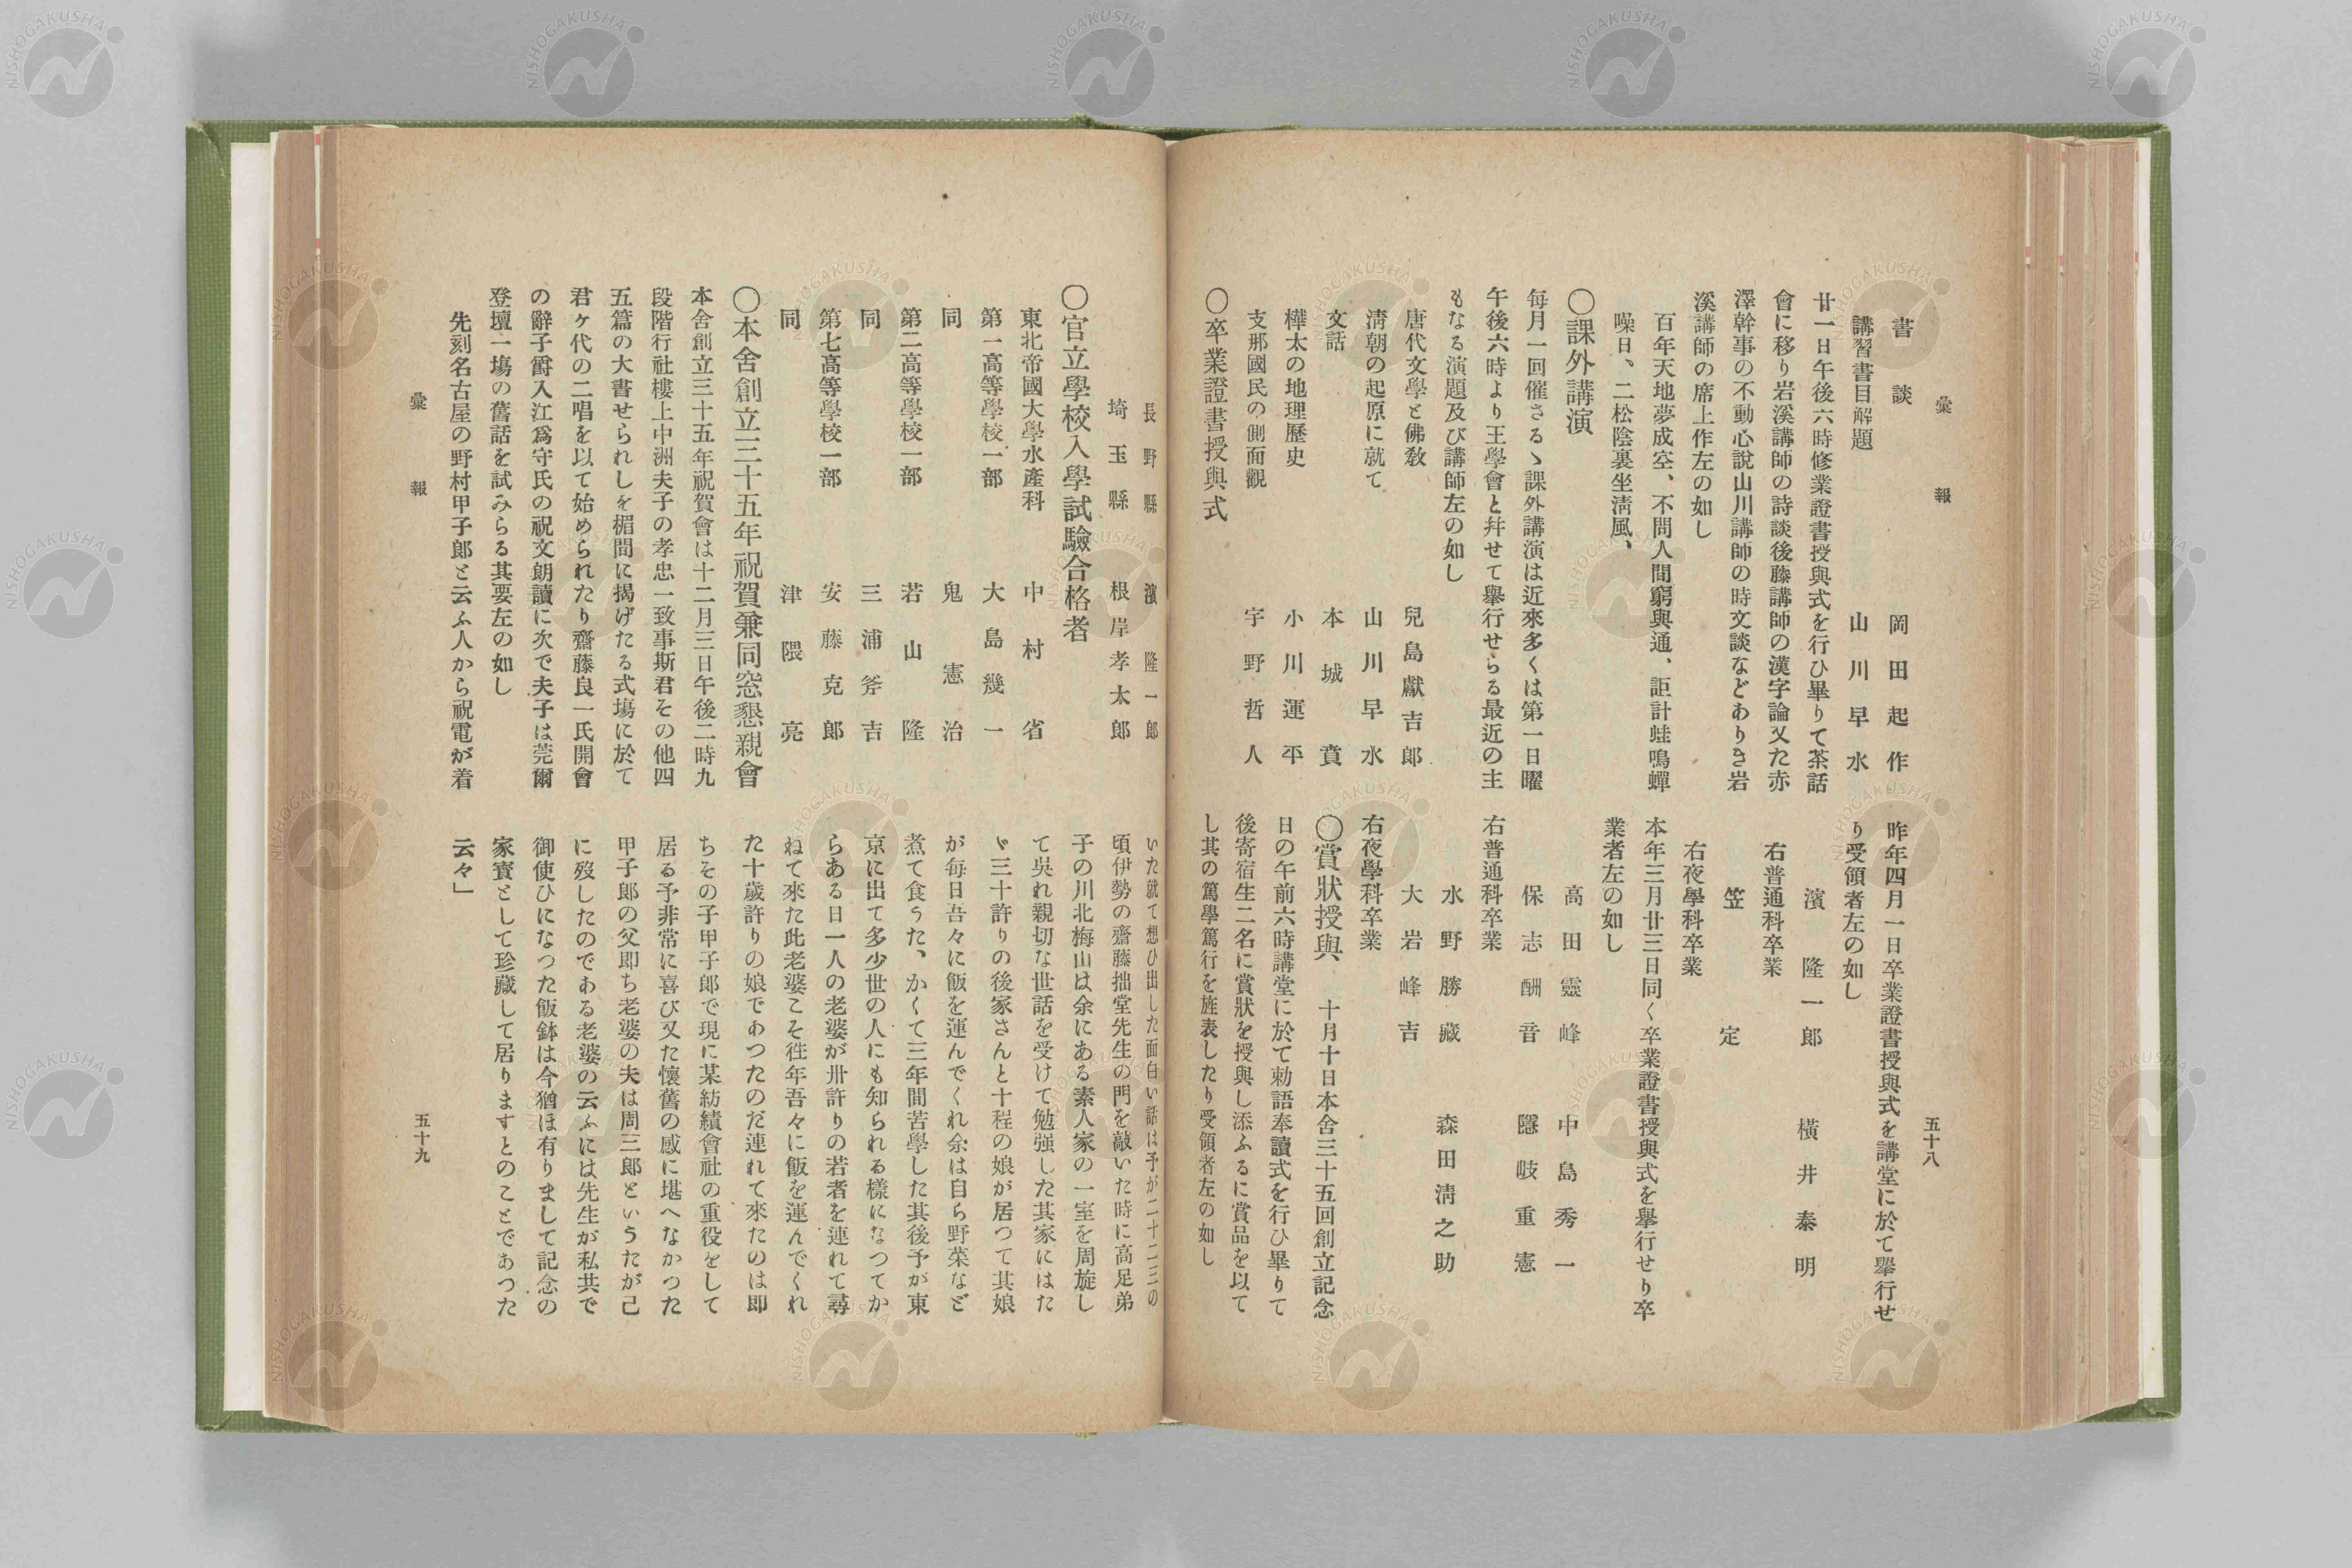 彙報
五十八
書談　岡田起作
講習書目解題　山川早水
廿一日午後六時修業證書授與式を行ひ畢りて茶話
會に移り岩溪講師の詩談後藤講師の漢字論又た赤
澤幹事の不動心說山川講師の時文談などありき岩
溪講師の席上作左の如し
百年天地夢成空、不問人間窮與通、詎計蛙鳴蟬
噪日、二松陰裏坐淸風、
〇課外講演
每月一回催さるゝ課外講演は近來多くは第一日曜
午後六時より王學會と幷せて擧行せらる最近の主
もなる演題及び講師左の如し
唐代文學と佛敎　兒島獻吉郎
淸朝の起原に就て　山川早水
文話　本城蕡
樺太の地理歷史　小川運平
支那國民の側面觀　宇野哲人
〇卒業證書授與式
昨年四月一日卒業證書授與式を講堂に於て擧行せ
り受領者左の如し
濱隆一郎　橫井泰明
右普通科卒業
笠定
右夜學科卒業
本年三月廿三日同く卒業證書授與式を擧行せり卒
業者左の如し
高田靈峰　中島秀一
保志酬音　隱岐重憲
右普通科卒業
水野勝藏　森田淸之助
大岩峰吉
右夜學科卒業
〇賞狀授與　十月十日本舍三十五回創立記念
日の午前六時講堂に於て勅語奉讀式を行ひ畢りて
後寄宿生二名に賞狀を授與し添ふるに賞品を以て
し其の篤學篤行を旌表したり受領者左の如し
長野縣　濱隆一郎
埼玉縣　根岸孝太郎
〇官立學校入學試驗合格者
東北帝國大學水產科　中村省
第一高等學校一部　大島幾一
同　鬼憲治
第二高等學校一部　若山隆
同　三浦斧吉
第七高等學校一部　安藤克郎
同　津隈亮
〇本舍創立三十五年祝賀兼同窓懇親會
本舍創立三十五年祝賀會は十二月三日午後二時九
段階行社樓上中洲夫子の孝忠一致事斯君その他四
五篇の大書せられしを楣間に揭げたる式場に於て
君ヶ代の二唱を以て始められたり齋藤良一氏開會
の辭子爵入江爲守氏の祝文朗讀に次で夫子は莞爾
登壇一場の舊話を試みらる其要左の如し
先刻名古屋の野村甲子郎と云ふ人から祝電が着
いた就て想ひ出した面白い話は予が二十二三の
頃伊勢の齋藤拙堂先生の門を敲いた時に高足弟
子の川北梅山は余にある素人家の一室を周旋し
て吳れ親切な世話を受けて勉强した其家にはた
ゞ三十許りの後家さんと十程の娘が居つて其娘
が每日吾々に飯を運んでくれ余は自ら野菜など
煮て食うた、かくて三年間苦學した其後予が東
京に出て多少世の人にも知られる樣になつてか
らある日一人の老婆が卅許りの若者を連れて尋
ねて來た此老婆こそ徃年吾々に飯を運んでくれ
た十歲許りの娘であつたのだ連れて來たのは即
ちその子甲子郎で現に某紡績會社の重役をして
居る予非常に喜び又た懷舊の感に堪へなかつた
甲子郎の父即ち老婆の夫は周三郎というたが已
に歿したのである老婆の云ふには先生が私共で
御使ひになつた飯鉢は今猶ほ有りまして記念の
家寶として珍藏して居りますとのことであつた
云々」
彙報
五十九
NISHOGAKUSHA